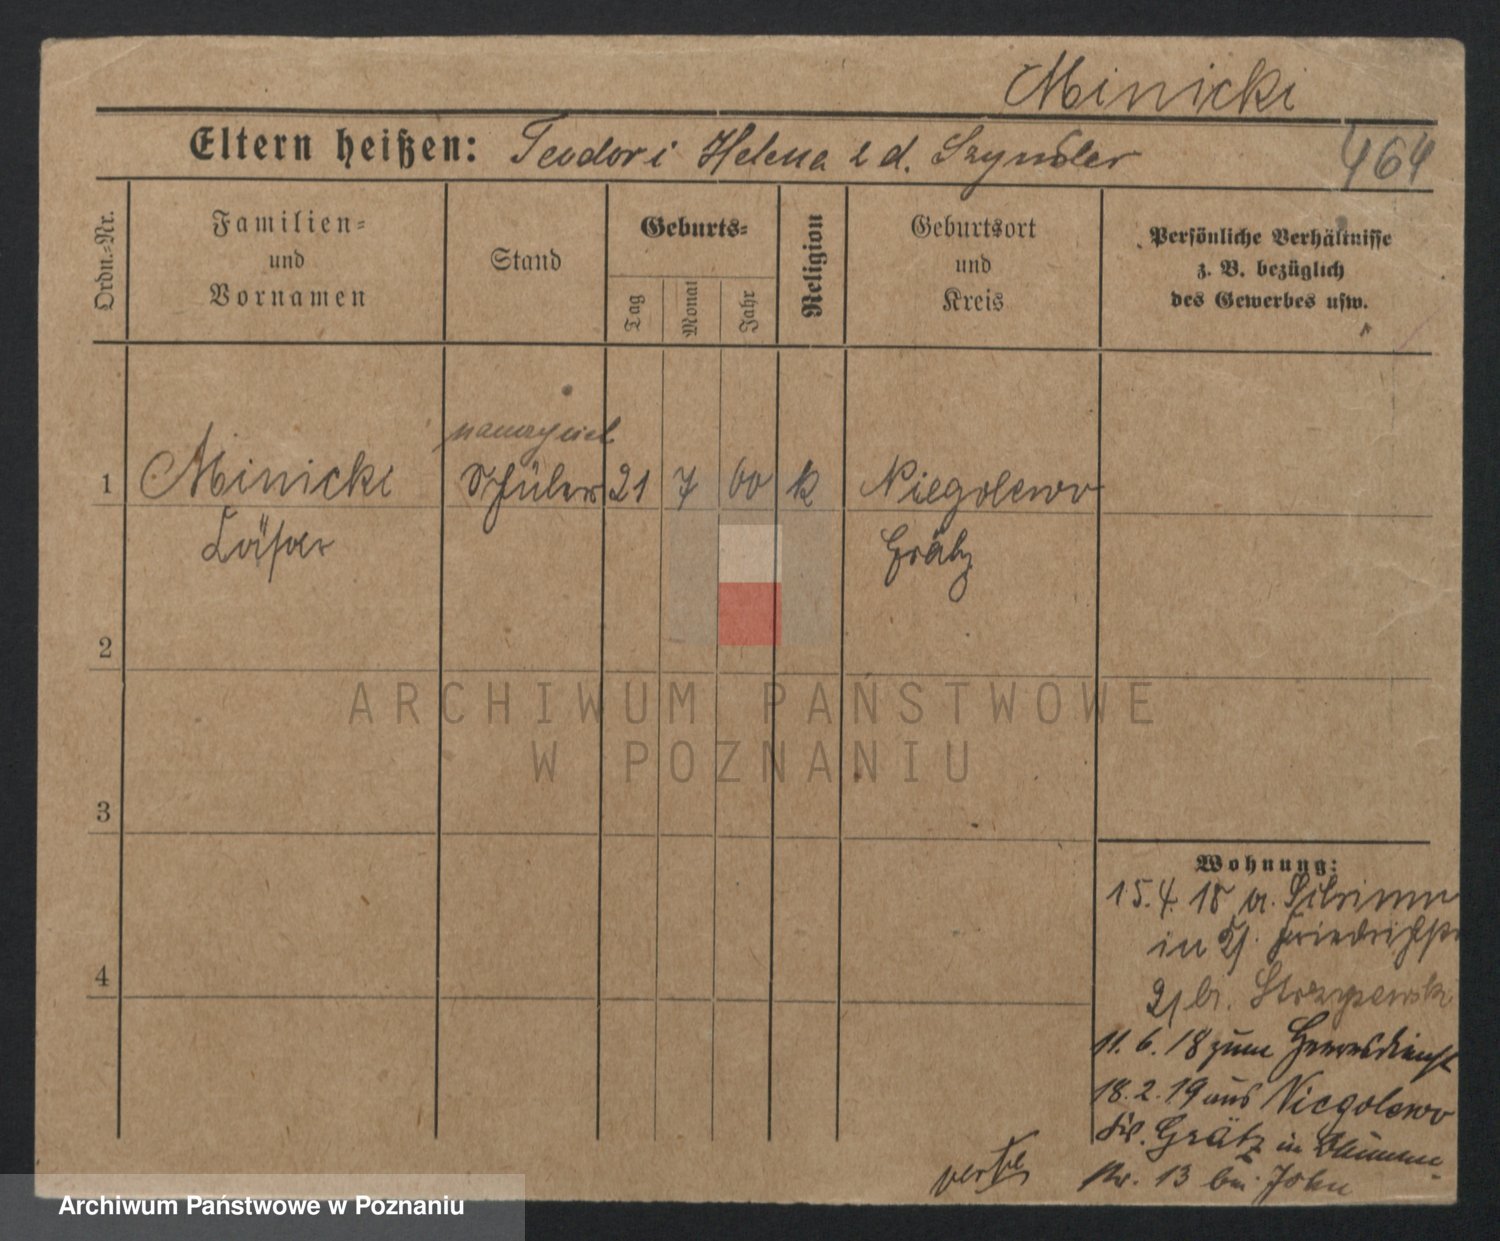 Minicki
Eltern heißen: Teodor i Helena z d. Szyndler
464
Ordn.-Nr.
Familien-
und
Vornamen
Stand
Geburts-
Tag
Monat
Jahr
Religion
Geburtsort
und
Kreis
Persönliche Verhältnisse
z. B. bezüglich
des Gewerbes usw.
nauczyciel
1 Minicki Schüler 21 7 00 k Niegolewo
Cäsar Grätz
2
ARCHIWUM PAŃSTWOWE
W POZNANIU
3
Wohnung:
15.4.18 a. Schrimm
in
4
21 b.
11.6.18 zum Heeresdienst
18.2.19 aus Niegolewo
Grätz in
13 bei John
Archiwum Państwowe w Poznaniu